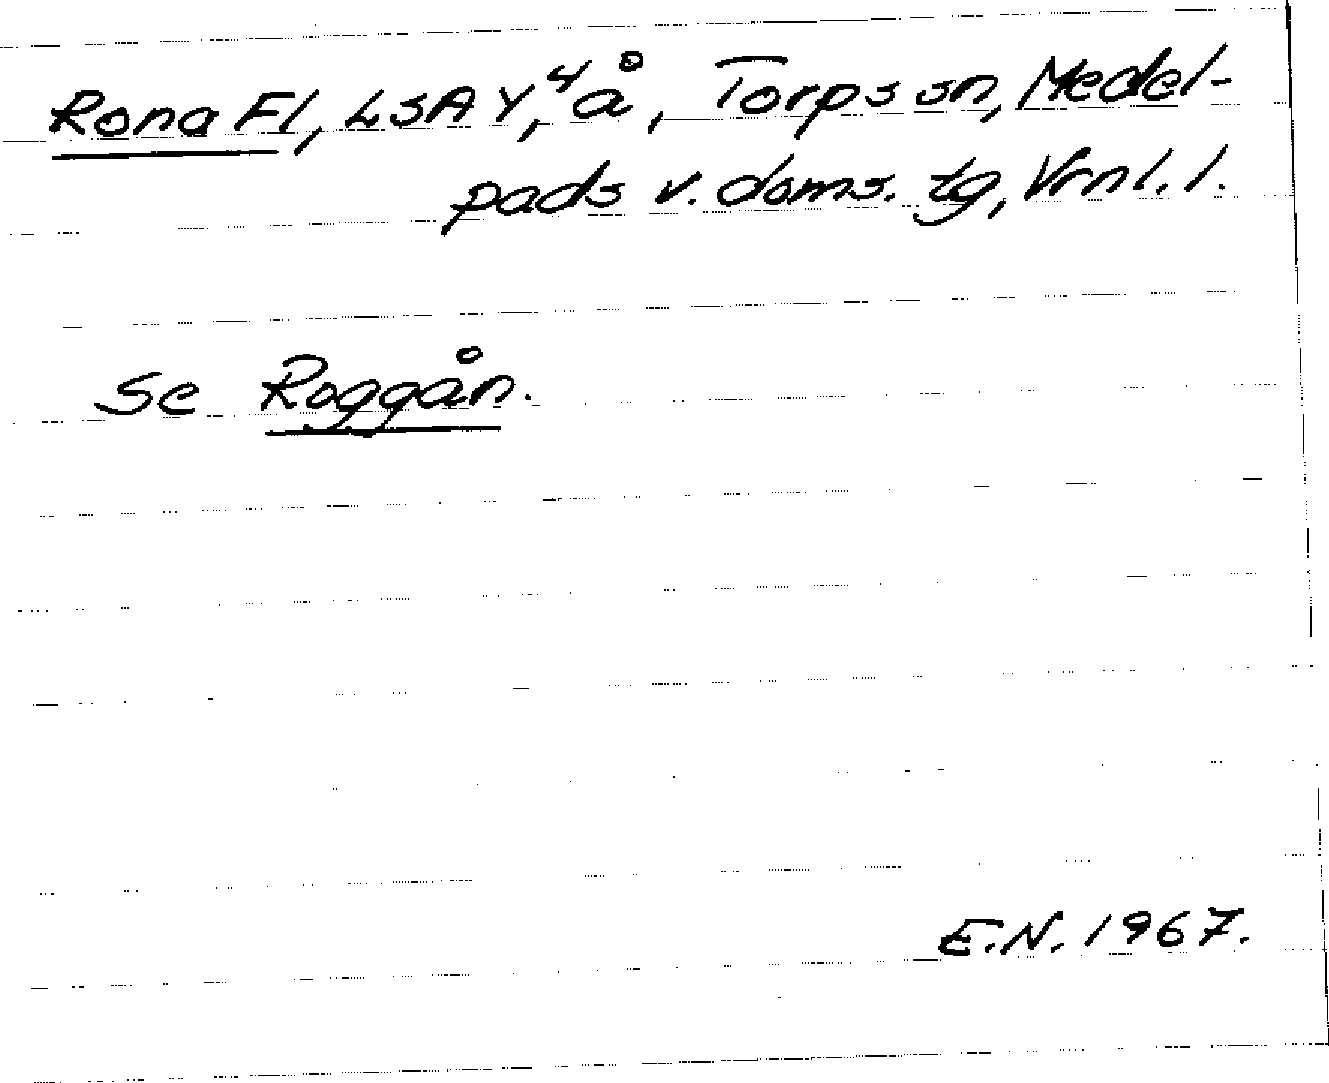 Rona Fl, LSA Y,⁴ å, Torps sn, Medel-
pads v. doms. tg, Vrnl. l.
se Roggån.
E.N. 1967.